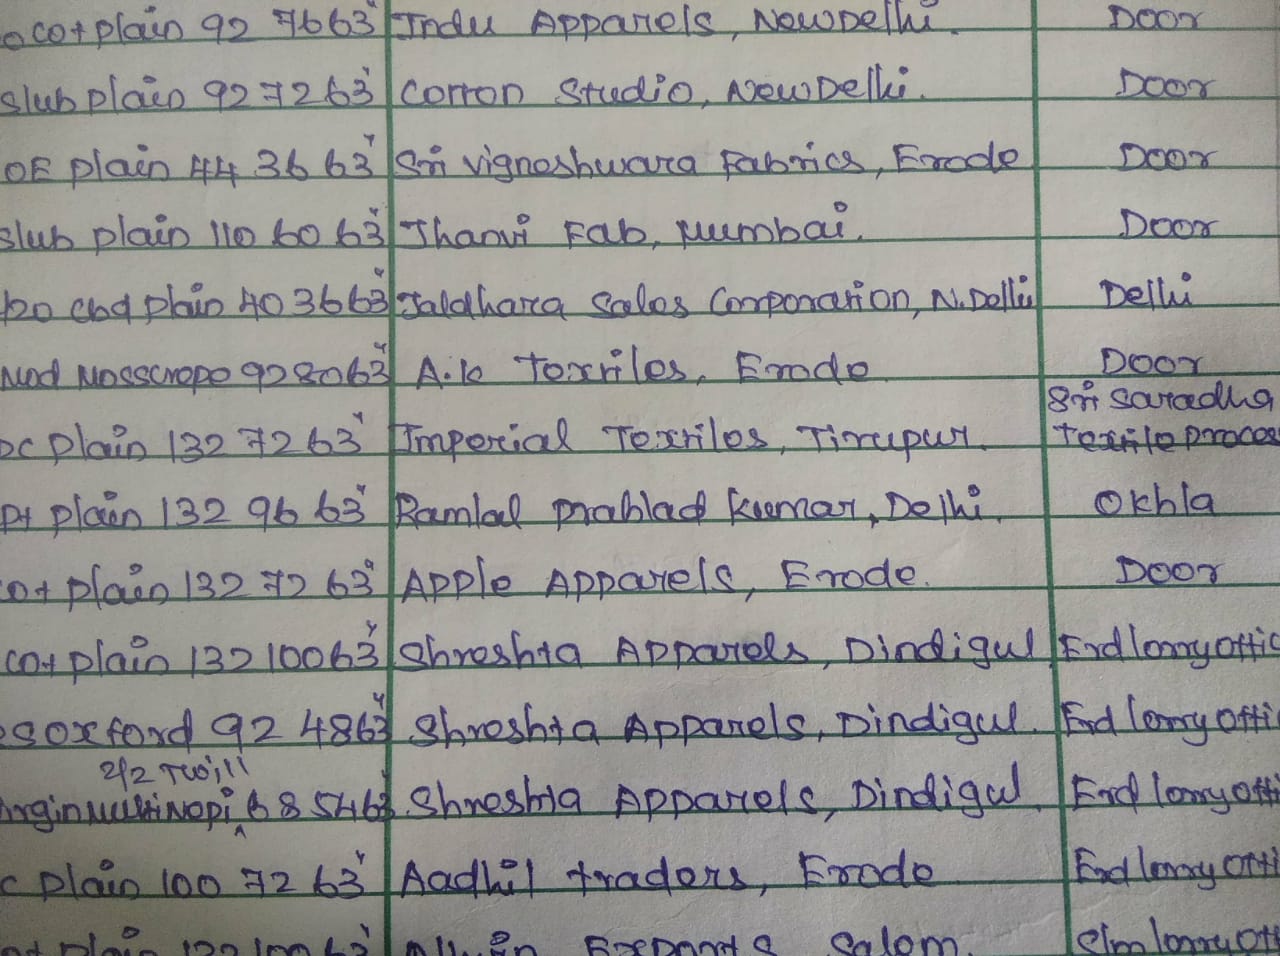 cot plain 92 7663" Indu Apparels, NewDelhi. Door
slub plain 92 7263" Cotton Studio, NewDelhi. Door
OE plain 44 3663" Sri Vigneshwara Fabrics, Erode Door
slub plain 110 6063" Jhanvi Fab, Mumbai. Door
cbd plain 40 3663" Jaldhara Sales Corporation, N.Delhi Delhi
Mod Mosscrepe 92 8063" A.K Textiles, Erode Door
Sri Saradha
PC plain 132 7263" Imperial Textiles, Tirupur. Textile Proces
plain 132 9663" Ramlal Prahlad Kumar, Delhi. Okhla
cot plain 132 7263" Apple Apparels, Erode. Door
cot plain 132 10063" Shreshta Apparels, Dindigul Erd lorry offic
oxford 92 4863" Shreshta Apparels, Dindigul. Erd lorry offi
2/2 Twill
68 5463" Shreshta Apparels, Dindigul. Erd lorry offi
c plain 100 7263" Aadhil traders, Erode Erd lorry offi
plain 132 10063" Exports Salem. Slm lorry off